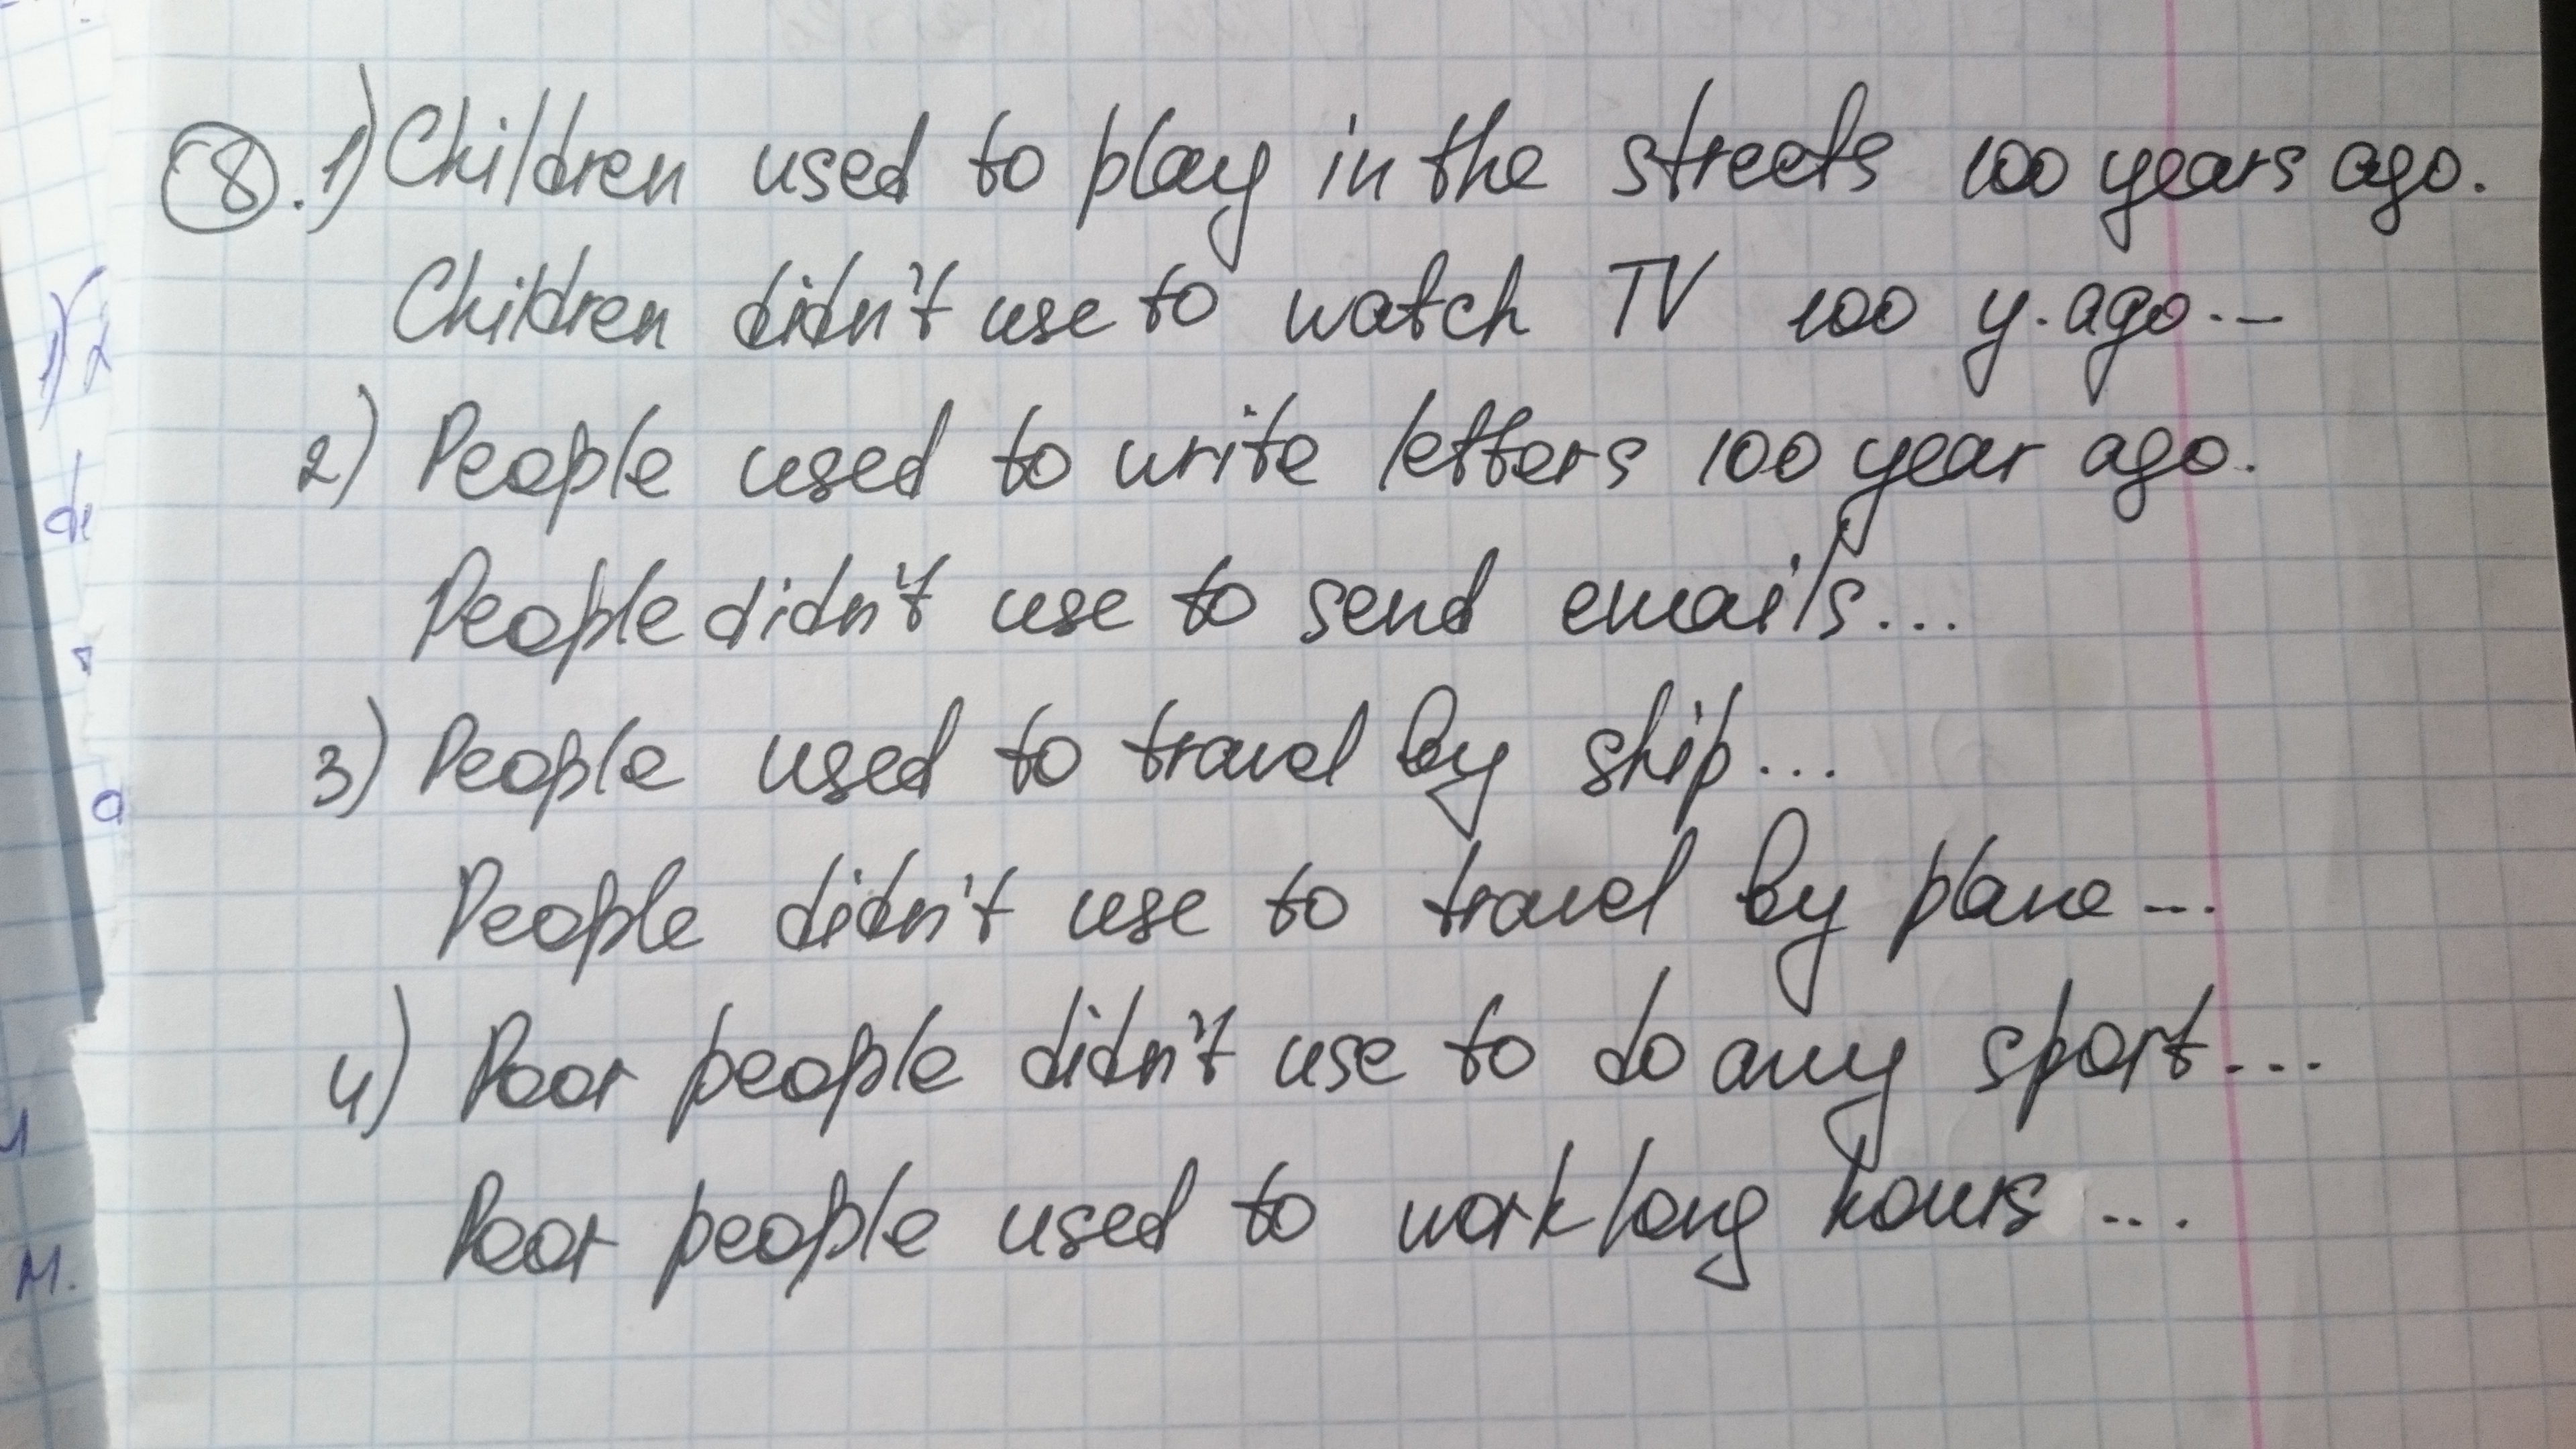 8. 1) Children used to play in the streets 100 years ago.
Children didn't use to watch TV 100 y. ago...
2) People used to write letters 100 year ago.
People didn't use to send emails...
3) People used to travel by ship...
People didn't use to travel by plane...
4) Poor people didn't use to do any sport...
Poor people used to work long hours...